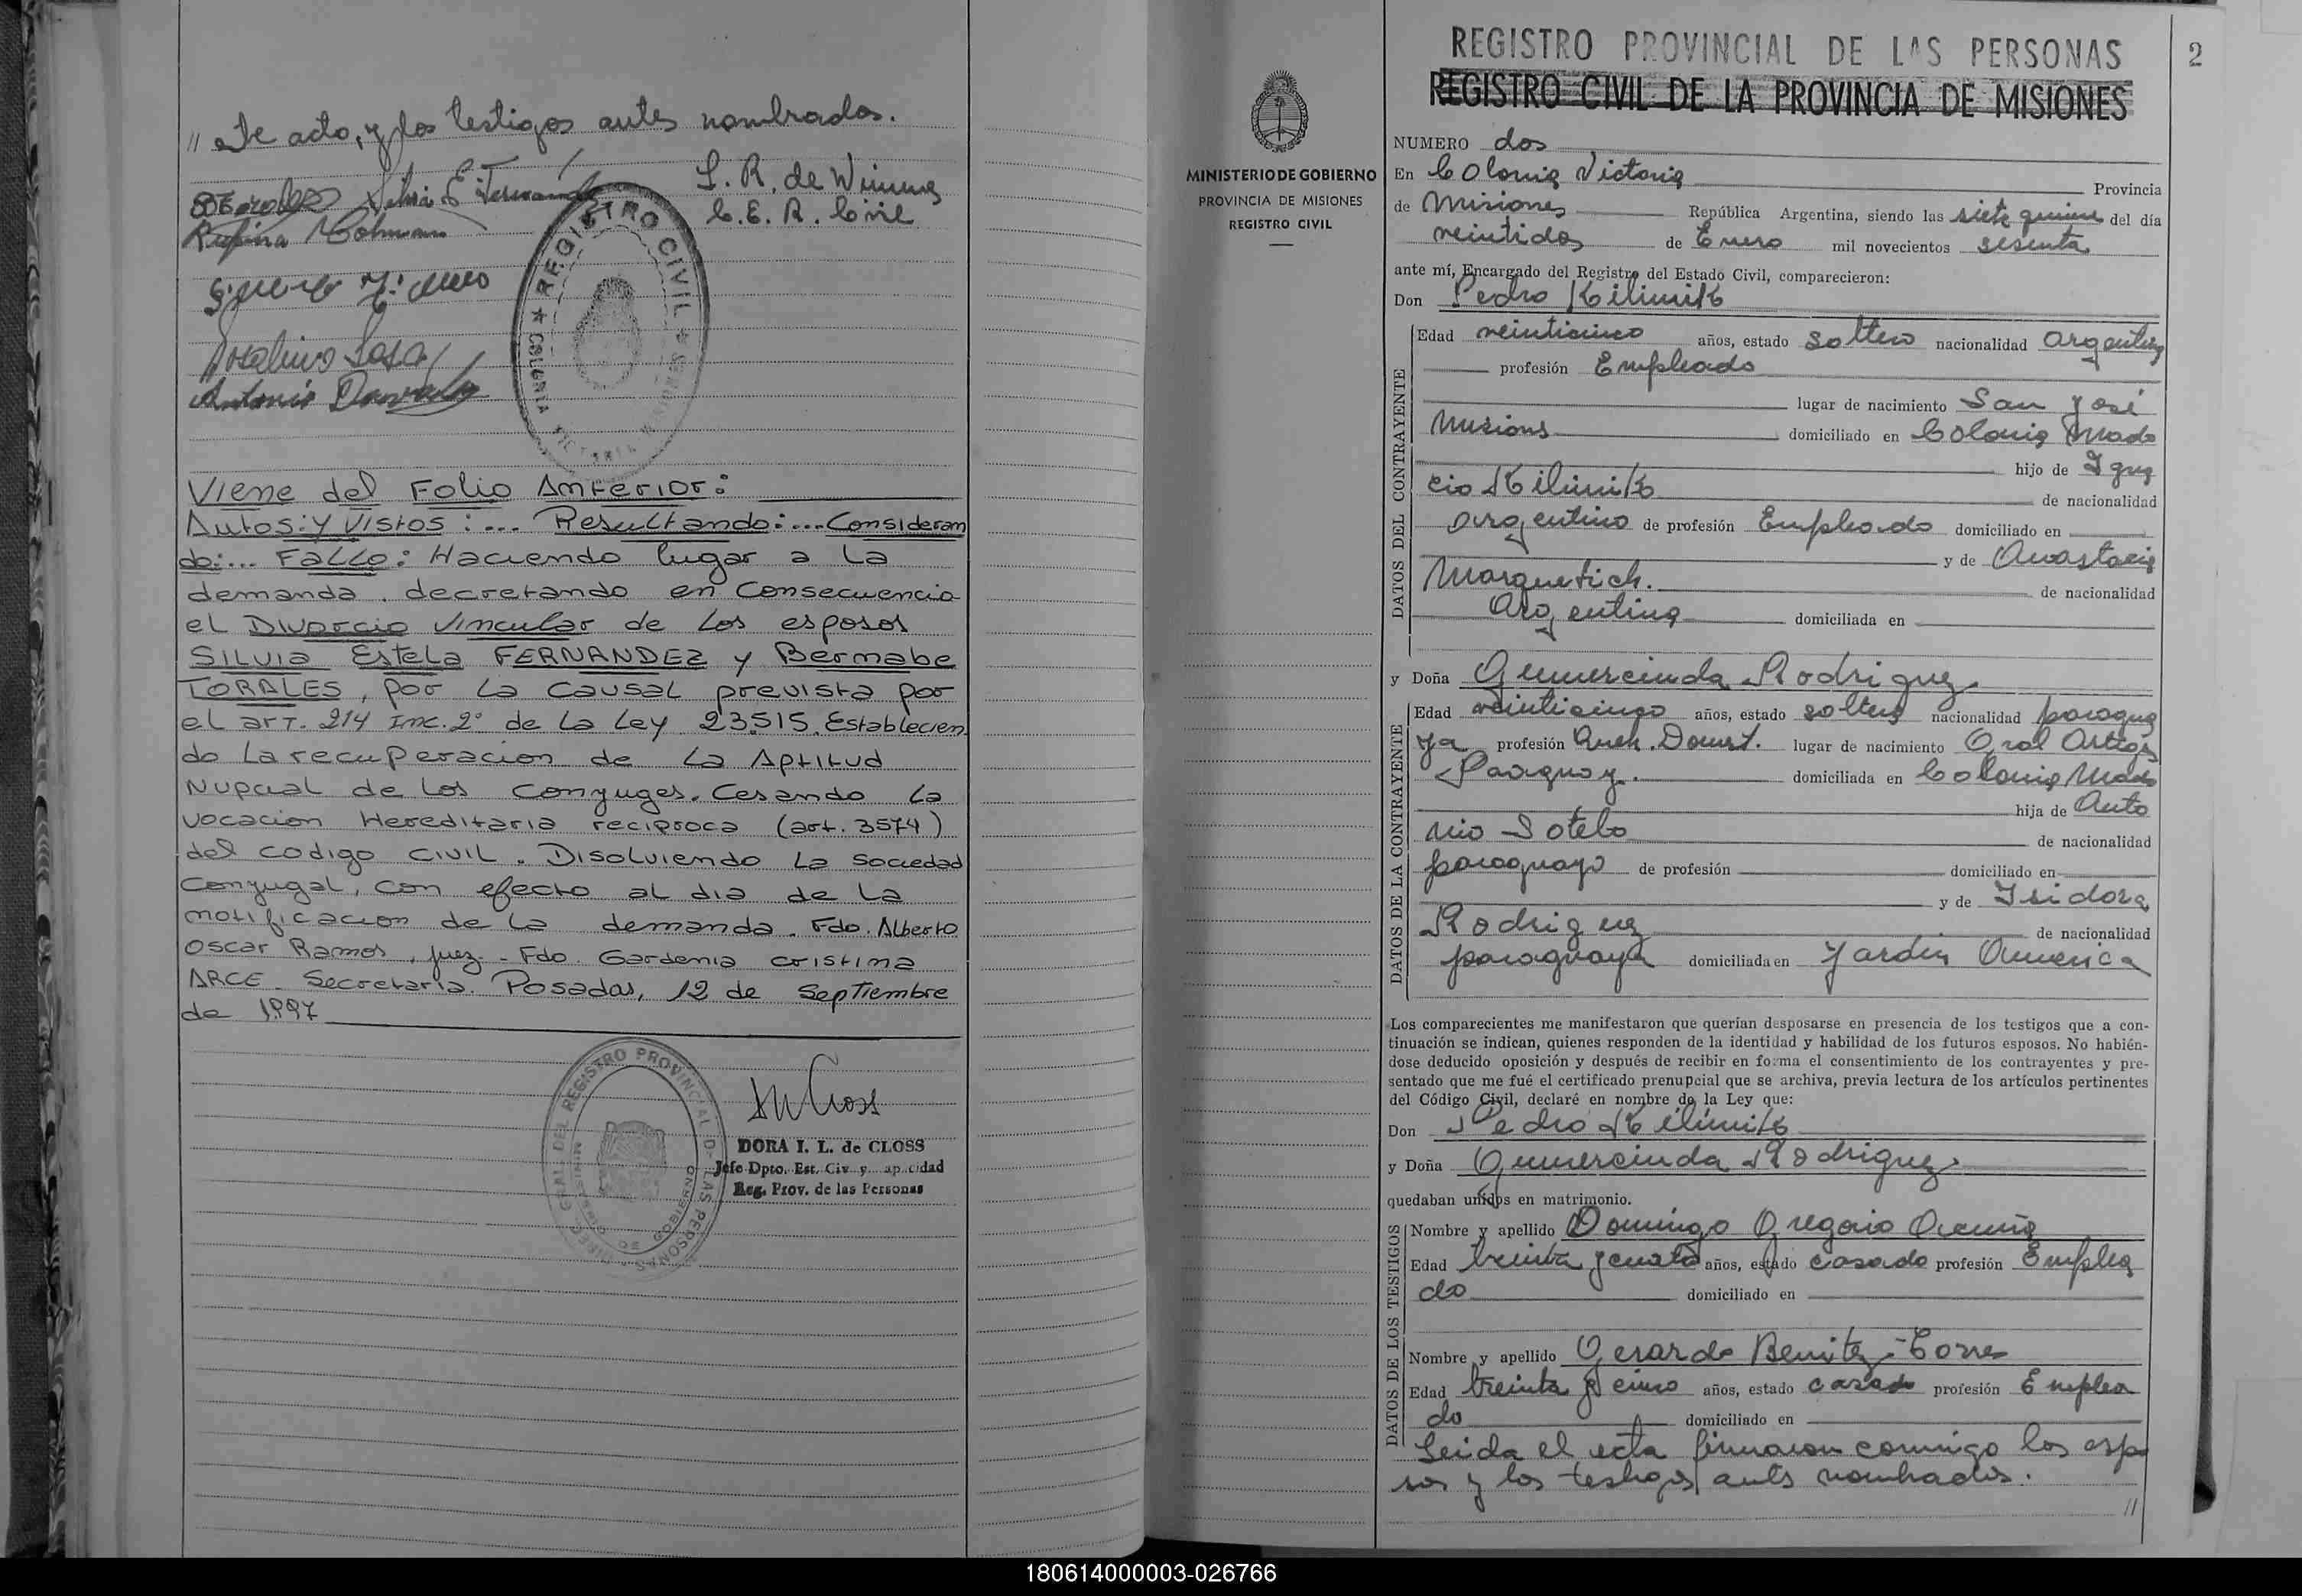 // este acto, y los testigos antes nombrados.
Silvia E. Fernandez
L. R. de
Rufina Colman
C. E. R. Civil
Rosalino Sosa
Antonio
★ REGISTRO CIVIL ★ COLONIA VICTORIA MISIONES
Viene del Folio Anterior:
Autos: y Vistos:... Resultando:... Consideran
do:... Fallo: Haciendo lugar a la
demanda. decretando en Consecuencia
el Divorcio Vincular de los esposos
SILVIA Estela FERNANDEZ y Bernabe
TORALES, por la causal prevista por
el art. 214 Inc. 2º de la Ley 23.515. Establecien
do la recuperacion de la Aptitud
Nupcial de los conyuges. Cesando la
vocacion Hereditaria reciproca (art. 3574)
del codigo civil. Disolviendo la sociedad
Conyugal, con efecto al dia de la
notificacion de la demanda. Fdo. Alberto
Oscar Ramos, juez. - Fdo. Gardenia cristina
ARCE. Secretaria. Posadas, 12 de Septiembre
de 1997
DORA I. L. de CLOSS
Jefe Dpto. Est. Civ. y Capacidad
Reg. Prov. de las Personas
MINISTERIO DE GOBIERNO
PROVINCIA DE MISIONES
REGISTRO CIVIL
REGISTRO PROVINCIAL DE LAS PERSONAS
2
REGISTRO CIVIL DE LA PROVINCIA DE MISIONES
NUMERO dos
En Colonia Victoria Provincia
de Misiones República Argentina, siendo las siete quince del día
veintidos de Enero mil novecientos sesenta
ante mí, Encargado del Registro del Estado Civil, comparecieron:
Don Pedro Kilimik
DATOS DEL CONTRAYENTE
Edad veinticinco años, estado soltero nacionalidad argentina
profesión Empleado
lugar de nacimiento San José
Misiones domiciliado en Colonia Mado
hijo de Igna
cio Kilimik de nacionalidad
argentino de profesión Empleado domiciliado en
y de Anastacia
Marquetich. de nacionalidad
Argentina domiciliada en
y Doña Gumercinda Rodriguez
DATOS DE LA CONTRAYENTE
Edad veinticinco años, estado soltera nacionalidad paragua
ya profesión Queh. Domest. lugar de nacimiento Gral Artigas
Paraguay. domiciliada en Colonia Mado
hija de Anto
nio Sotelo de nacionalidad
paraguayo de profesión domiciliado en
y de Isidora
Rodriguez de nacionalidad
paraguaya domiciliada en Jardin America
Los comparecientes me manifestaron que querían desposarse en presencia de los testigos que a con-
tinuación se indican, quienes responden de la identidad y habilidad de los futuros esposos. No habién-
dose deducido oposición y después de recibir en forma el consentimiento de los contrayentes y pre-
sentado que me fué el certificado prenupcial que se archiva, previa lectura de los artículos pertinentes
del Código Civil, declaré en nombre de la Ley que:
Don Pedro Kilimik
y Doña Gumercinda Rodriguez
quedaban unidos en matrimonio.
DATOS DE LOS TESTIGOS
Nombre y apellido Domingo Gregorio Acuña
Edad treinta y cuatro años, estado casado profesión Emplea
do domiciliado en
Nombre y apellido Gerardo Benitez Torres
Edad treinta y cinco años, estado casado profesión Emplea
do domiciliado en
Leida el acta firmaron conmigo los espo
sos y los testigos antes nombrados.
//
180614000003-026766